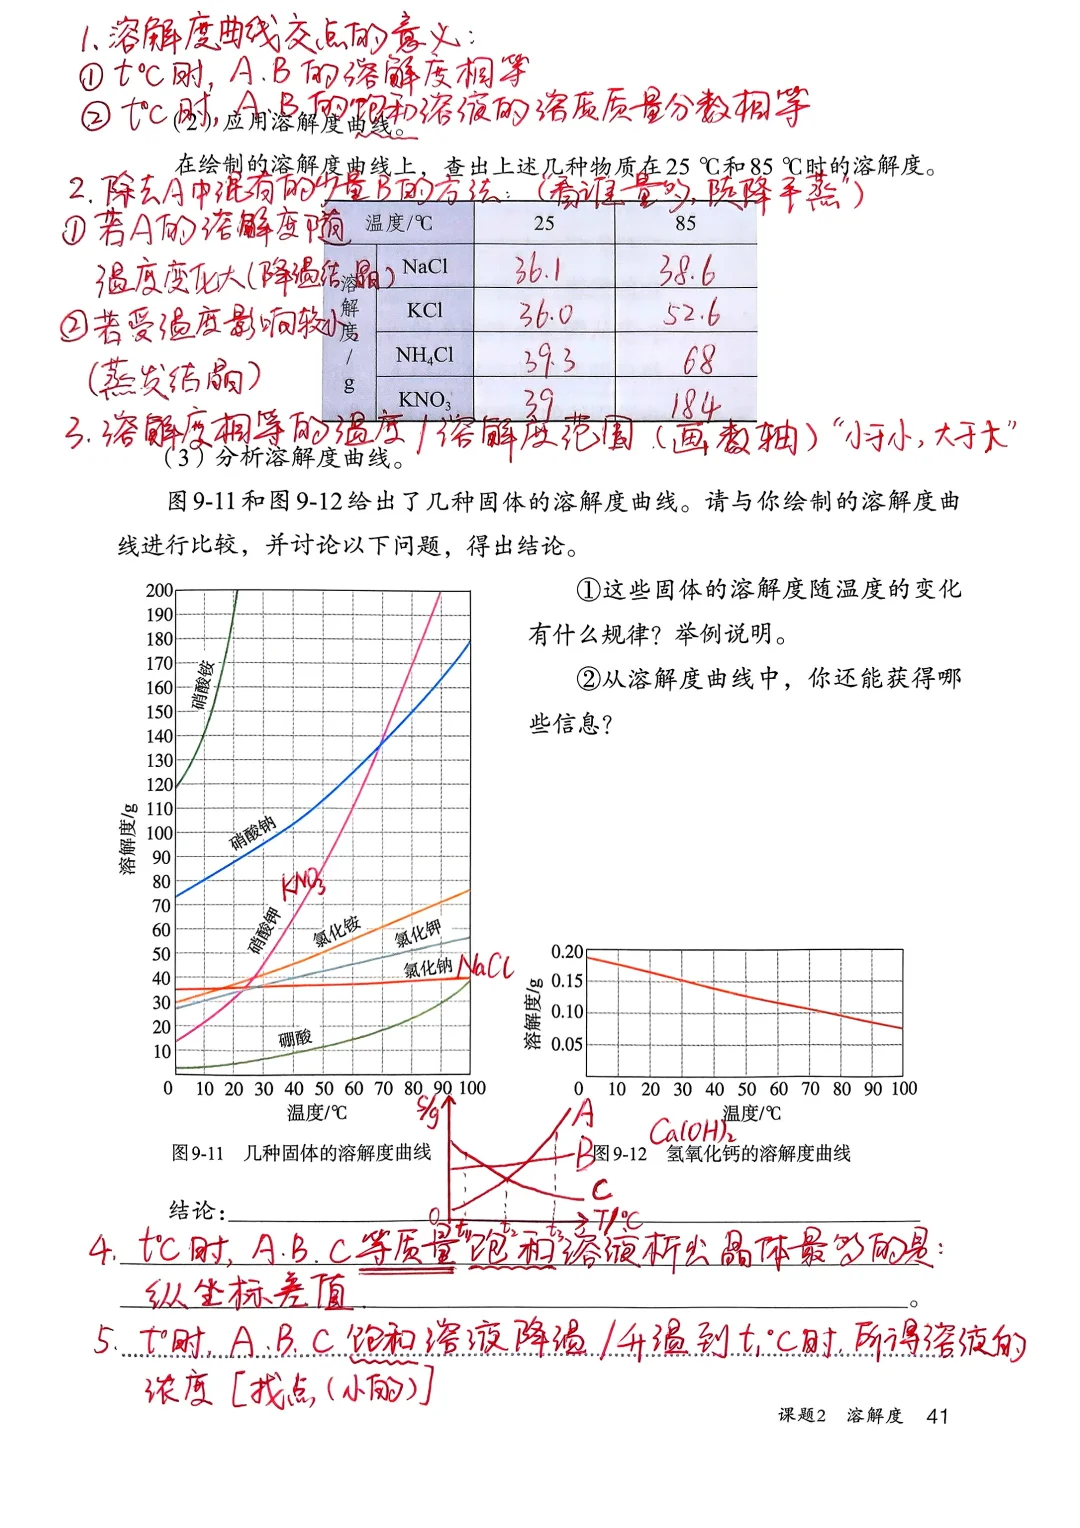 1. 溶解度曲线交点的意义：
① t℃时，A.B的溶解度相等
② t℃时，A.B的饱和溶液的溶质质量分数相等
（2）应用溶解度曲线。
在绘制的溶解度曲线上，查出上述几种物质在25 ℃和85 ℃时的溶解度。
2. 除去A中混有的少量B的方法：（“看谁量多，陡降平蒸”）
① 若A的溶解度随
温度变化大(降温结晶)
② 若受温度影响较小，
(蒸发结晶)
温度/℃ 25 85
溶解度/g
NaCl 36.1 38.6
KCl 36.0 52.6
NH₄Cl 39.3 68
KNO₃ 39 184
3. 溶解度相等的温度/溶解度范围（画数轴）“小于小，大于大”
（3）分析溶解度曲线。
图9-11和图9-12给出了几种固体的溶解度曲线。请与你绘制的溶解度曲
线进行比较，并讨论以下问题，得出结论。
①这些固体的溶解度随温度的变化
有什么规律？举例说明。
②从溶解度曲线中，你还能获得哪
些信息？
溶解度/g
200
190
180
170
160
150
140
130
120
110
100
90
80
70
60
50
40
30
20
10
0 10 20 30 40 50 60 70 80 90 100
温度/℃
硝酸铵
硝酸钠
KNO₃
硝酸钾
氯化铵
氯化钾
氯化钠 NaCl
硼酸
图9-11 几种固体的溶解度曲线
溶解度/g
0.20
0.15
0.10
0.05
0 10 20 30 40 50 60 70 80 90 100
温度/℃
Ca(OH)₂
图9-12 氢氧化钙的溶解度曲线
S/g
A
B
C
0 t₁ t₂ t₃ T/℃
结论：
4. t℃时，A.B.C等质量饱和溶液析出晶体最多的是：
纵坐标差值
。
5. t°时，A.B.C饱和溶液降温/升温到t₁℃时，所得溶液的
浓度［找点（小的）］
课题2 溶解度 41